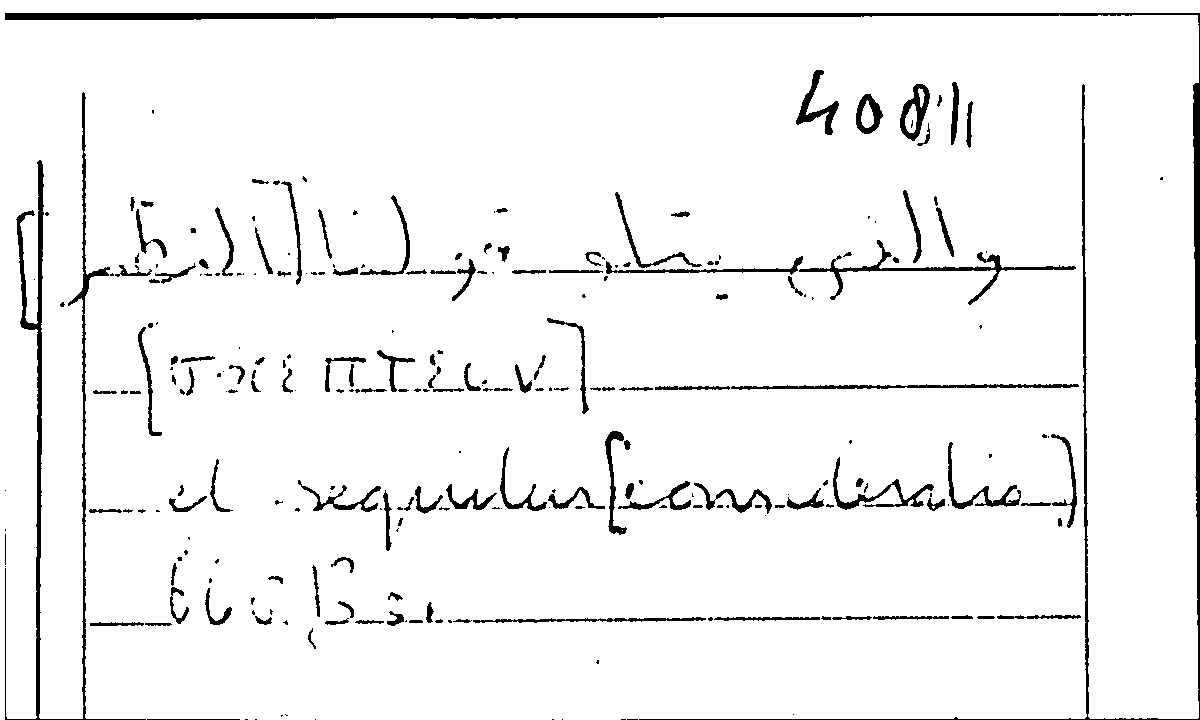 40811
والذي يتلو قولنا [النظر]
[σκεπτειν]
et sequitur [consideratio]
660, B 31